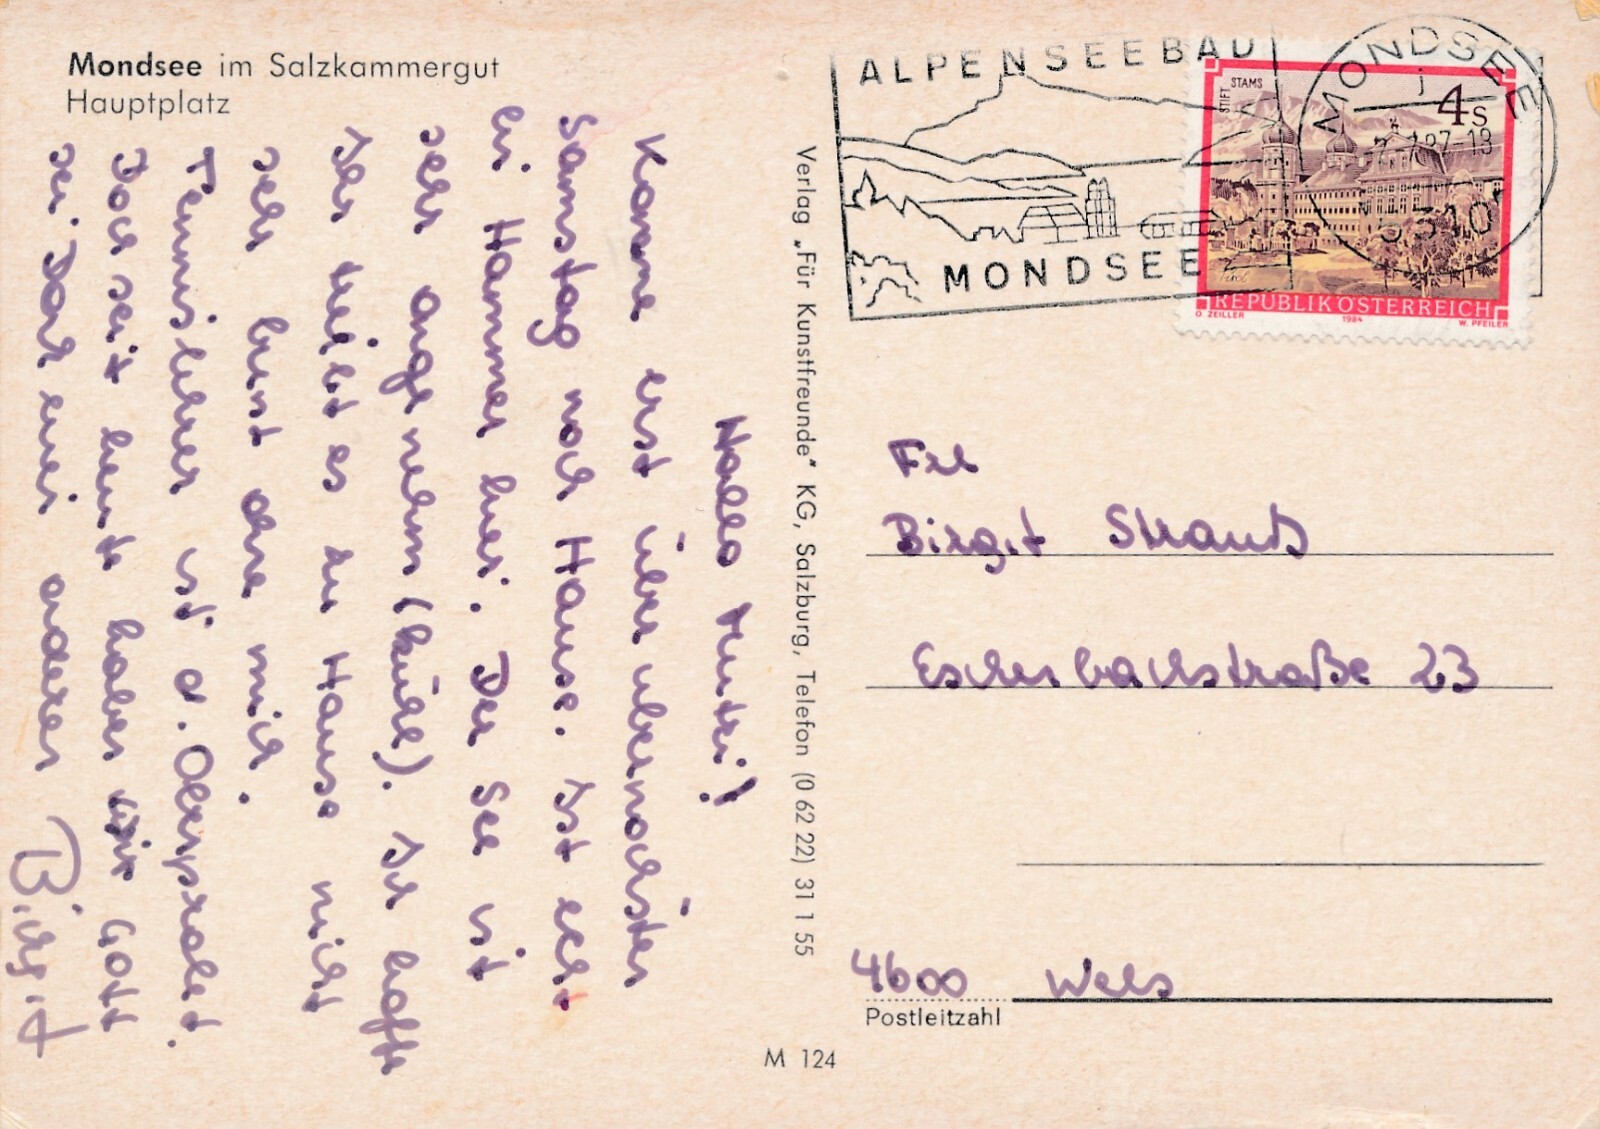 Mondsee im Salzkammergut
Hauptplatz
Hallo Mutzi!
Komme erst über übernächsten
Samstag nach Hause. Ist echt
ein Hammer hier. Der See ist
sehr angenehm (kühl). Ich hoffe
Dir treibt es zu Hause nicht
sehr bunt ohne mir.
Tennislehrer ist d. Oberprolet.
Doch seit heute haben wir Gott
sei Dank einen anderen
Birgit
Verlag „Für Kunstfreunde" KG, Salzburg, Telefon (0 62 22) 31 1 55
M 124
ALPENSEEBAD
MONDSEE
MONDSEE
87-13
5310
STIFT STAMS
4s
Tirol
REPUBLIK ÖSTERREICH
O. ZEILLER 1984 W. PFEILER
Frl
Birgit Strauß
Eschenbachstraße 23
4600 Wels
Postleitzahl